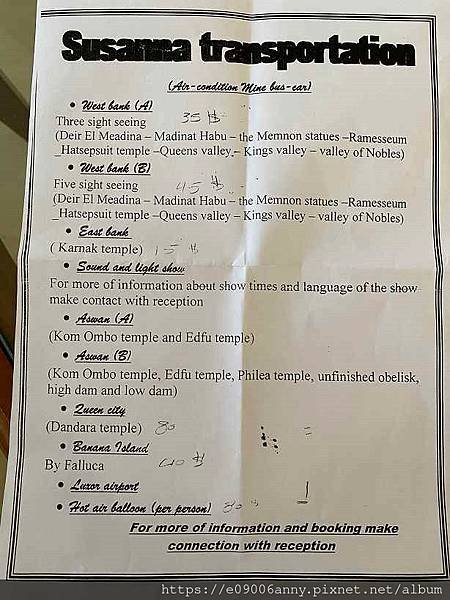 Susanna transportation
(Air-condition Mine bus-car)
• West bank (A)
Three sight seeing 35 $
(Deir El Meadina – Madinat Habu – the Memnon statues –Ramesseum
_Hatsepsuit temple –Queens valley – Kings valley – valley of Nobles)
• West bank (B)
Five sight seeing 45 $
(Deir El Meadina – Madinat Habu – the Memnon statues –Ramesseum
_Hatsepsuit temple –Queens valley – Kings valley – valley of Nobles)
• East bank
( Karnak temple) 15 $
• Sound and light show
For more of information about show times and language of the show
make contact with reception
• Aswan (A)
(Kom Ombo temple and Edfu temple)
• Aswan (B)
(Kom Ombo temple, Edfu temple, Philea temple, unfinished obelisk,
high dam and low dam)
• Queen city
(Dandara temple) 80
• Banana Island
By Falluca 40 $
• Luxor airport
• Hot air balloon (per person) 80 $
For more of information and booking make
connection with reception
https://e09006anny.pixnet.net/album